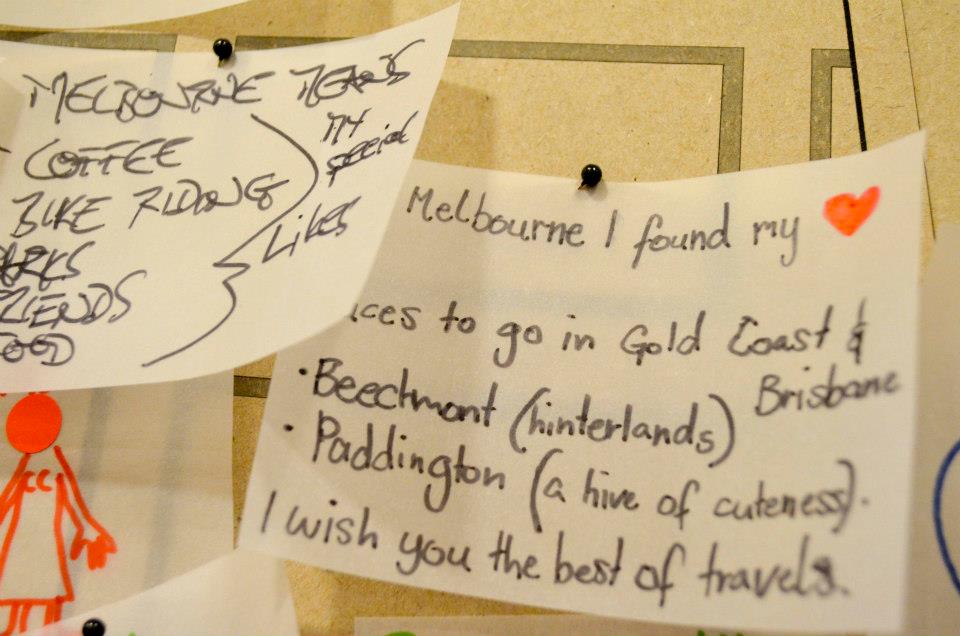 MELBOURNE MEANS
COFFEE
BIKE RIDING
ARKS
IENDS
OOD
MY
special
Likes
Melbourne I found my ❤
ces to go in Gold Coast &
Brisbane
· Beechmont (hinterlands)
· Paddington (a hive of cuteness).
I wish you the best of travels.